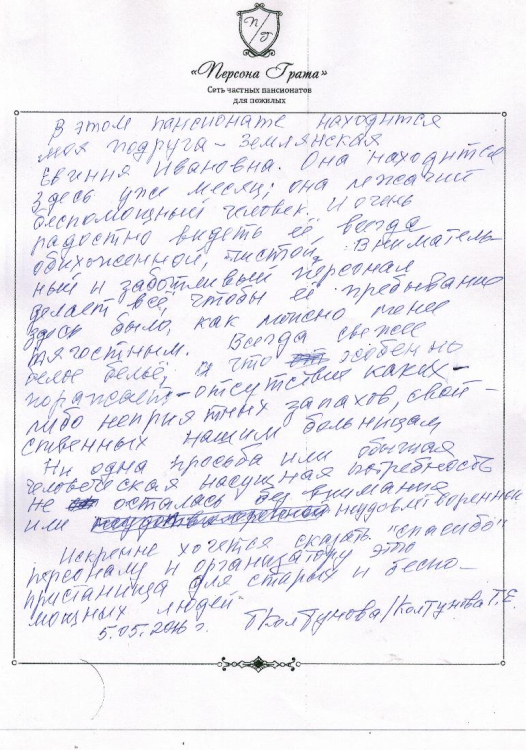 П/Г
«Персона Грата»
Сеть частных пансионатов
для пожилых
В этом пансионате находится
моя подруга – Землянская
Евгения Ивановна. Она находится
здесь уже месяц; она лежачий
беспомощный человек. И очень
радостно видеть её всегда
обихоженной, чистой. Вниматель-
ный и заботливый персонал
делает всё, чтобы её пребывание
здесь было, как можно менее
тягостным. Всегда свежее
белое бельё, а что особенно
поражает – отсутствие каких-
либо неприятных запахов, свой-
ственных нашим больницам
Ни одна просьба или обычная
человеческая насущная потребность
не осталась без внимания
или неудовлетворенной
Искренне хочется сказать "спасибо"
персоналу и организатору этого
пристанища для старых и беспо-
мощных людей
5.05.2016 г. ТКолтунова/Колтунова Т.Е.